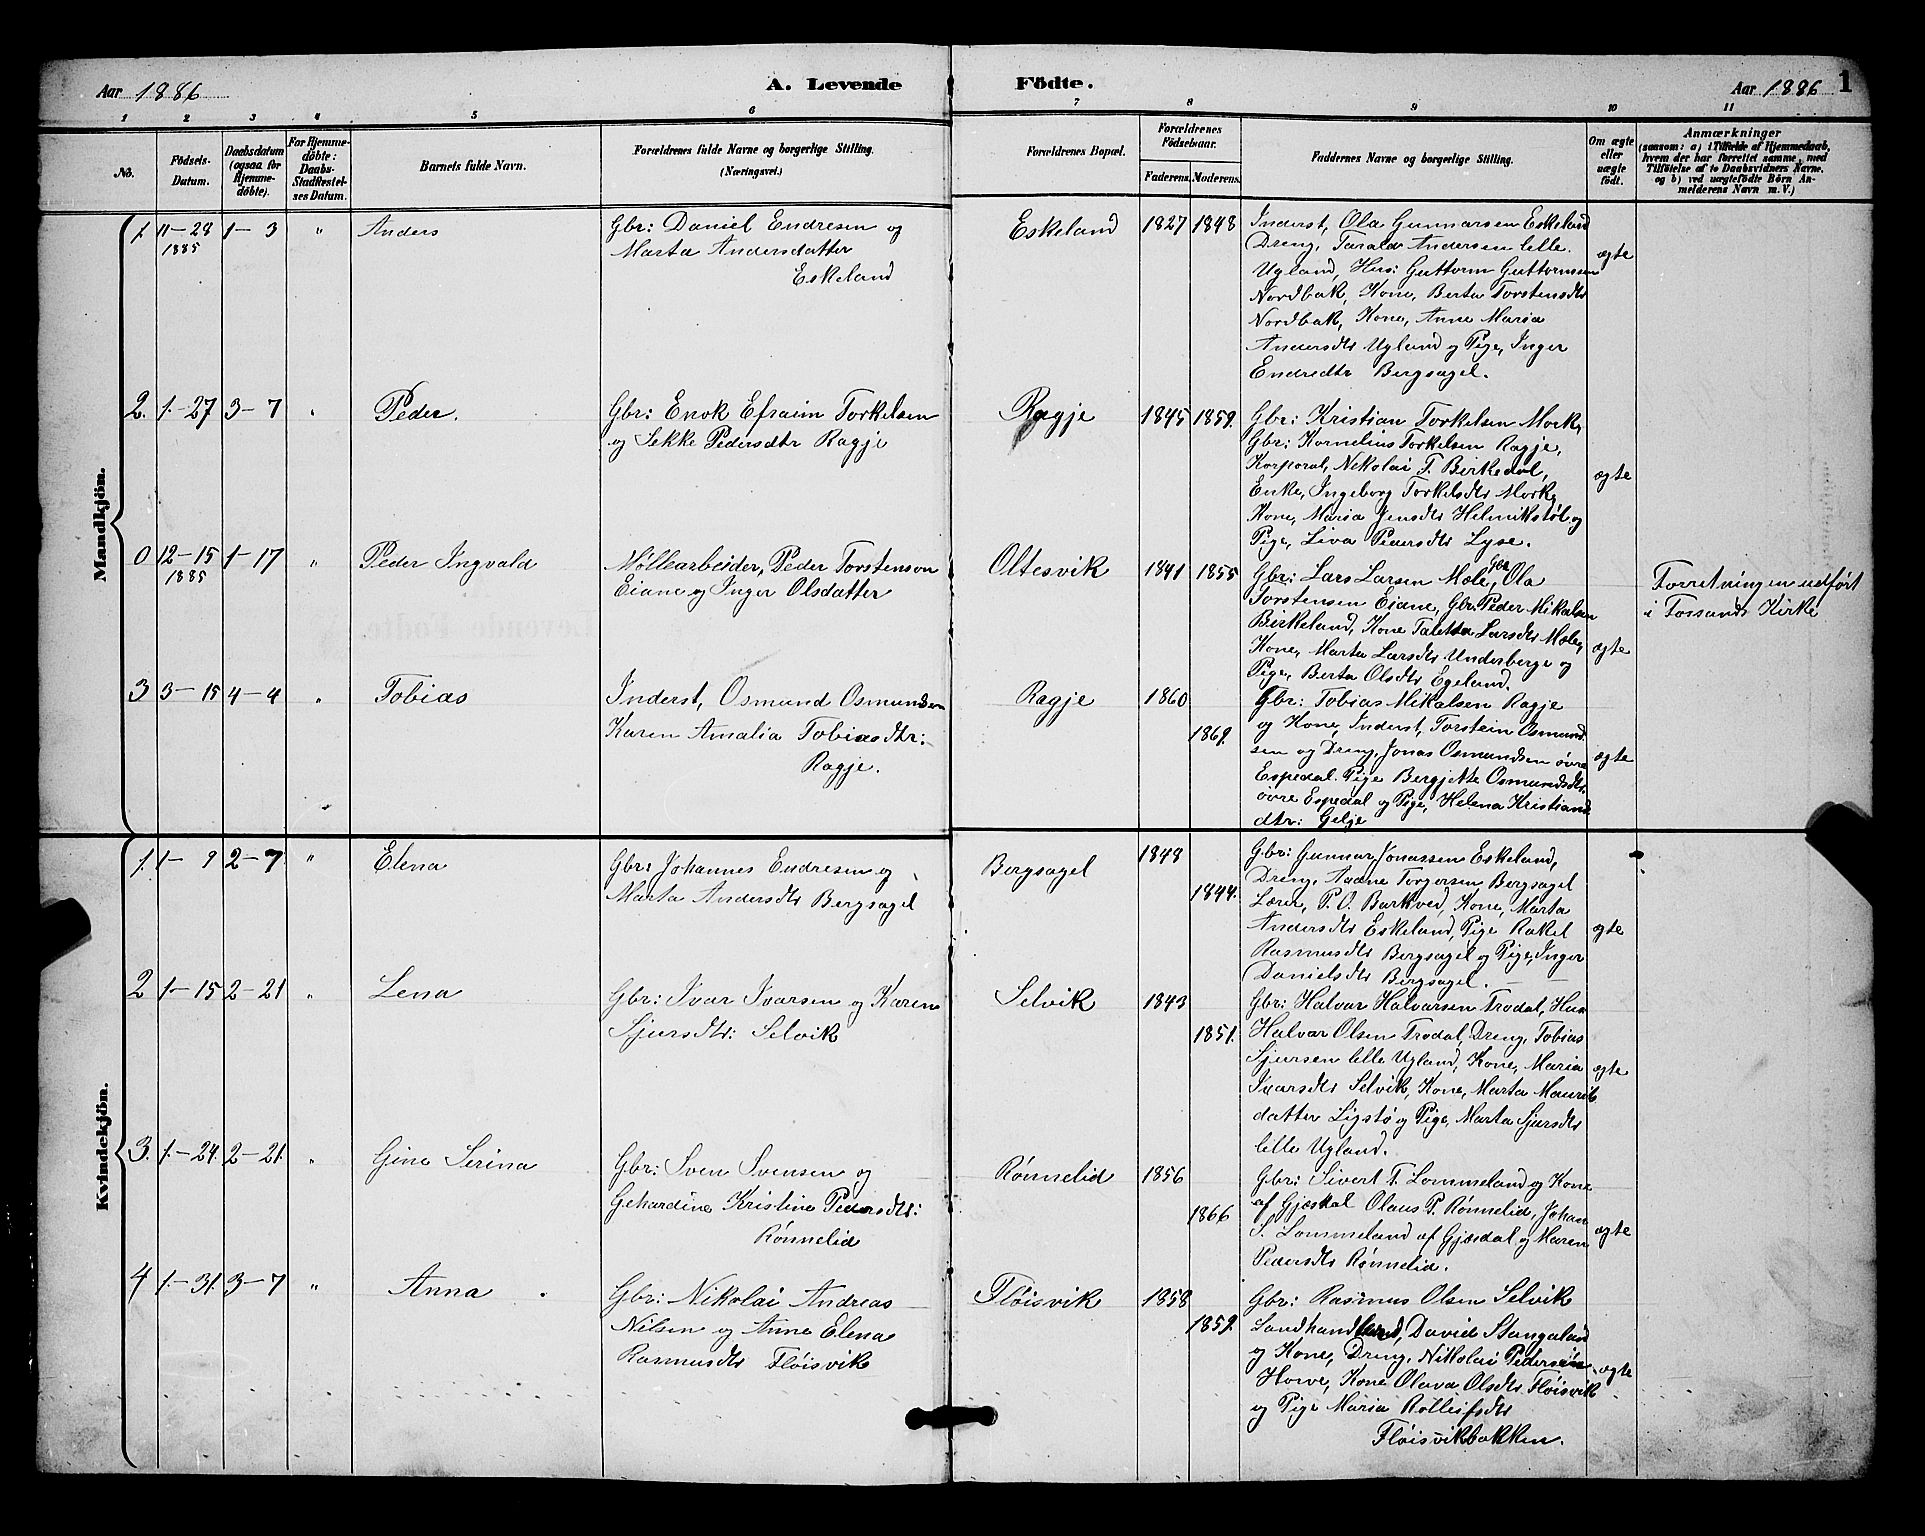 Aar 1886
A. Levende
Födte.
Aar 1886
1
1 2 3 4 5 6 7 8 9 10 11
No.
Födsels-
Datum.
Daabsdatum
(ogsaa for
Hjemme-
döbte).
For Hjemme-
döbte:
Daabs-
Stadfæstel-
ses Datum.
Barnets fulde Navn.
Forældrenes fulde Navne og borgerlige Stilling.
(Næringsvei.)
Forældrenes Bopæl.
Forældrenes
Födselsaar.
Faderens. Moderens.
Faddernes Navne og borgerlige Stilling.
Om ægte
eller
uægte
födt.
Anmærkninger
(saasom: a) i Tilfælde af Hjemmedaab,
hvem der har forrettet samme, med
Tilföielse af to Daabsvidners Navne,
og b) ved uægtefödte Börn An-
melderens Navn m. V.)
Mandkjön.
1. 11-28 1-3 " Anders
1885
Gbr: Daniel Endresen og
Marta Andersdatter
Eskeland
Eskeland 1827 1848
Inderst, Ola Gunnarsen Eskeland
Dreng, Tarald Andersen lille
Ugland, Hus: Guttorm Guttormsen
Nordbak, Kone, Berta Torstensdtr
Nordbak, Kone, Anne Maria
Andersdtr Ugland og Pige, Inger
Endredtr Bergsagel.
ægte
2. 1-27 3-7 " Peder.
Gbr: Enok Efraim Torkelsen
og Sekke Pedersdtr Ragje
Ragje 1845 1859.
Gbr: Kristian Torkelsen Mork,
Gbr: Kornelius Torkelsen Ragje,
Korporal, Nikolai T. Birkedal,
Enke, Ingeborg Torkelsdtr Mork,
Kone, Maria Jensdtr Helmikstøl og
Pige, Liva Pedersdtr Lyse.
ægte
0 12-15 1-17 " Peder Ingvald
1885
Møllearbeider, Peder Torstenson
Eiane og Inger Olsdatter
Oltesvik 1841 1855
Gbr: Lars Larsen Mæle, Gbr Ola
Torstensen Eiane, Gbr Peder Mikalsen
Birkeland, Kone Taletta Larsdtr Mæle,
Kone, Marta Larsdtr Underberge og
Pige, Berta Olsdtr Egeland.
ægte
Forretningen udført
i Fossands Kirke
3 3-15 4-4 " Tobias
Inderst, Osmund Osmundsen
Karen Amalia Tobiasdtr:
Ragje.
Ragje 1860
1869.
Gbr: Tobias Mikalsen Ragje
og Kone, Inderst, Torstein Osmund
sen og Dreng, Jonas Osmundsen øvre
Espedal. Pige Bergjette Osmundsdtr.
øvre Espedal og Pige, Helena Kristians
dtr: Gelje
ægte
Kvindekjön.
1. 1-9 2-7 " Elena
Gbr: Johannes Endresen og
Marta Andersdtr Bergsagel
Bergsagel 1848
1844.
Gbr: Gunnar Jonassen Eskeland,
Dreng, Aadne Torgersen Bergsagel
Lærer, P. O. Barkved, Kone, Marta
Andersdtr Eskeland, Pige Rakel
Rasmusdtr Bergsagel og Pige, Inger
Danielsdtr Bergsagel.
ægte
2 1-15 2-21 " Lena
Gbr: Ivar Ivarsen og Karen
Sjursdtr: Selvik
Selvik 1843
1851.
Gbr: Halvar Halvarsen Trodal, Hus
Halvar Olsen Trodal, Dreng, Tobias
Sjursen lille Ugland, Kone, Maria
Ivarsdtr Selvik, Kone, Marta Maurits
datter Ligstø og Pige, Marta Sjursdtr
lille Ugland.
ægte
3. 1-24. 2-21. " Gine Serina
Gbr: Sven Svensen og
Gehardine Kristine Pedersdtr:
Rønnelid
Rønnelid 1856
1866
Gbr: Sivert T. Lommeland og Kone
af Gjesdal Olaus P. Rønnelid, Johan
S. Lommeland af Gjesdal og Maren
Pedersdtr Rønnelid.
ægte
4 1-31. 3-7 " Anna
Gbr: Nikolai Andreas
Nilsen og Anne Elena
Rasmusdtr Fløisvik
Fløisvik 1858
1859.
Gbr: Rasmus Olsen Selvik
Landhandler, David Stangeland
og Kone, Dreng, Nikolai Pedersen
Howe, Kone Olava Olsdtr Fløisvik
og Pige Maria Rolleifsdtr
Fløisvikbakken.
ægte